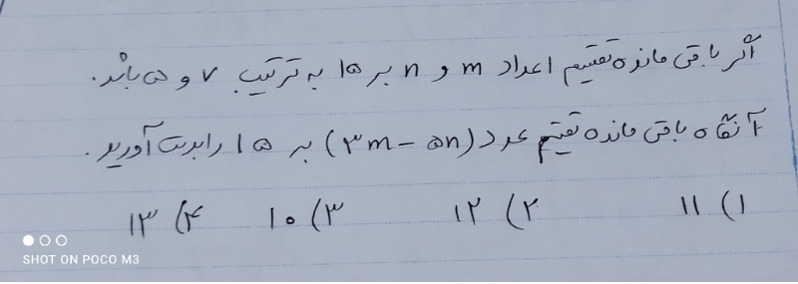 اگر باقی مانده تقسیم اعداد m و n بر ۱۵ به ترتیب ۷ و ۵ باشد.
آنگاه باقی مانده تقسیم عدد (۳m - ۵n) بر ۱۵ را بدست آورید.
۱) ۱۱ ۲) ۱۲ ۳) ۱۰ ۴) ۱۳
SHOT ON POCO M3